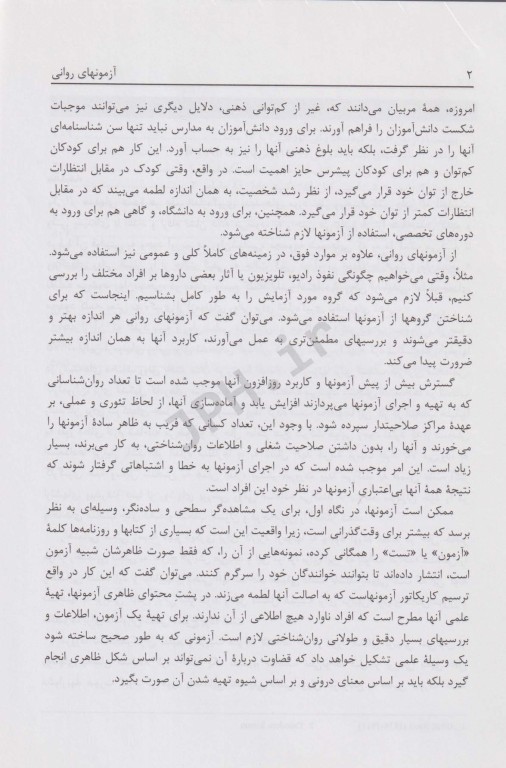 ۲ آزمونهای روانی
امروزه، همهٔ مربیان می‌دانند که، غیر از کم‌توانی ذهنی، دلایل دیگری نیز می‌توانند موجبات
شکست دانش‌آموزان را فراهم آورند. برای ورود دانش‌آموزان به مدارس نباید تنها سن شناسنامه‌ای
آنها را در نظر گرفت، بلکه باید بلوغ ذهنی آنها را نیز به حساب آورد. این کار هم برای کودکان
کم‌توان و هم برای کودکان پیشرس حایز اهمیت است. در واقع، وقتی کودک در مقابل انتظارات
خارج از توان خود قرار می‌گیرد، از نظر رشد شخصیت، به همان اندازه لطمه می‌بیند که در مقابل
انتظارات کمتر از توان خود قرار می‌گیرد. همچنین، برای ورود به دانشگاه، و گاهی هم برای ورود به
دوره‌های تخصصی، استفاده از آزمونها لازم شناخته می‌شود.
از آزمونهای روانی، علاوه بر موارد فوق، در زمینه‌های کاملاً کلی و عمومی نیز استفاده می‌شود.
مثلاً، وقتی می‌خواهیم چگونگی نفوذ رادیو، تلویزیون یا آثار بعضی داروها بر افراد مختلف را بررسی
کنیم، قبلاً لازم می‌شود که گروه مورد آزمایش را به طور کامل بشناسیم. اینجاست که برای
شناختن گروهها از آزمونها استفاده می‌شود. می‌توان گفت که آزمونهای روانی هر اندازه بهتر و
دقیقتر می‌شوند و بررسیهای مطمئن‌تری به عمل می‌آورند، کاربرد آنها به همان اندازه بیشتر
ضرورت پیدا می‌کند.
گسترش بیش از پیش آزمونها و کاربرد روزافزون آنها موجب شده است تا تعداد روان‌شناسانی
که به تهیه و اجرای آزمونها می‌پردازند افزایش یابد و آماده‌سازی آنها، از لحاظ تئوری و عملی، بر
عهدهٔ مراکز صلاحیتدار سپرده شود. با وجود این، تعداد کسانی که فریب به ظاهر سادهٔ آزمونها را
می‌خورند و آنها را، بدون داشتن صلاحیت شغلی و اطلاعات روان‌شناختی، به کار می‌برند، بسیار
زیاد است. این امر موجب شده است که در اجرای آزمونها به خطا و اشتباهاتی گرفتار شوند که
نتیجهٔ همهٔ آنها بی‌اعتباریِ آزمونها در نظر خود این افراد است.
ممکن است آزمونها، در نگاه اول، برای یک مشاهده‌گر سطحی و ساده‌نگر، وسیله‌ای به نظر
برسد که بیشتر برای وقت‌گذرانی است، زیرا واقعیت این است که بسیاری از کتابها و روزنامه‌ها کلمهٔ
«آزمون» یا «تست» را همگانی کرده، نمونه‌هایی از آن را، که فقط صورت ظاهرشان شبیه آزمون
است، انتشار داده‌اند تا بتوانند خوانندگان خود را سرگرم کنند. می‌توان گفت که این کار در واقع
ترسیم کاریکاتور آزمونهاست که به اصالت آنها لطمه می‌زند. در پشتِ محتوای ظاهری آزمونها، تهیهٔ
علمی آنها مطرح است که افراد ناوارد هیچ اطلاعی از آن ندارند. برای تهیهٔ یک آزمون، اطلاعات و
بررسیهای بسیار دقیق و طولانی روان‌شناختی لازم است. آزمونی که به طور صحیح ساخته شود
یک وسیلهٔ علمی تشکیل خواهد داد که قضاوت دربارهٔ آن نمی‌تواند بر اساس شکل ظاهری انجام
گیرد بلکه باید بر اساس معنای درونی و بر اساس شیوه تهیه شدن آن صورت بگیرد.
JPH.ir